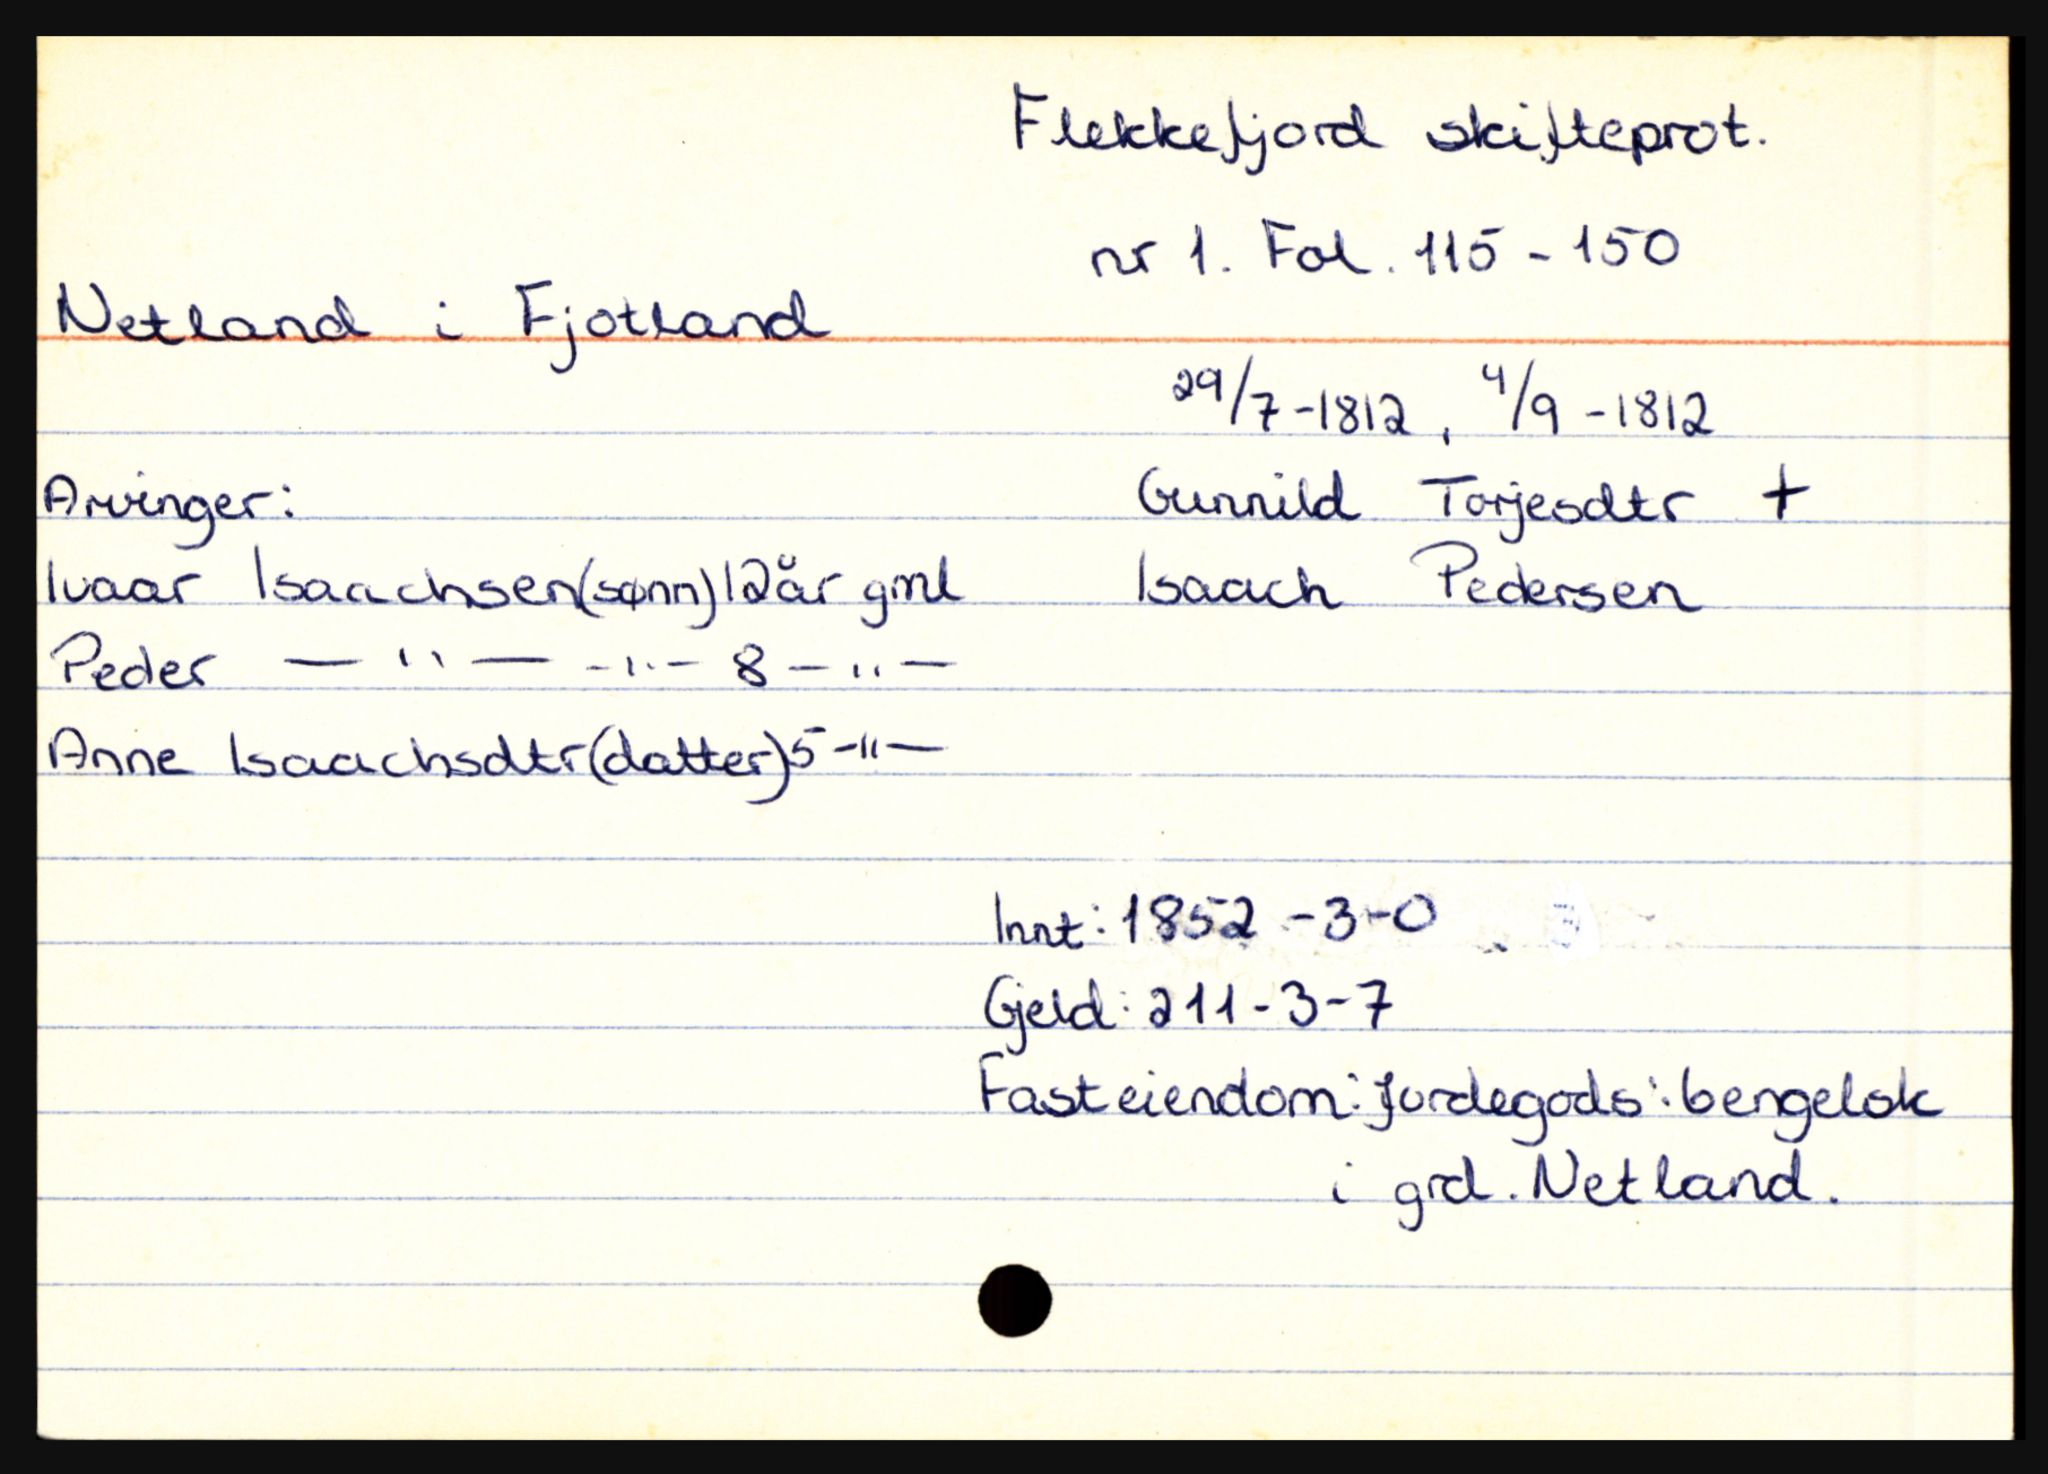 Flekkefjord skifteprot.
nr 1. Fol. 115 - 150
Netland i Fjotland
29/7-1812, 4/9 -1812
Arvinger:
Gunnild Torjesdtr +
Ivaar Isaachsen(sønn) 12 år gml
Isaach Pedersen
Peder — " — - " - 8 - " -
Anne Isaachsdtr(datter) 5 - " -
Innt: 1852 - 3 - 0
Gjeld: 211 - 3 - 7
Fast eiendom: Jordegods: bengelsk
i grd. Netland.